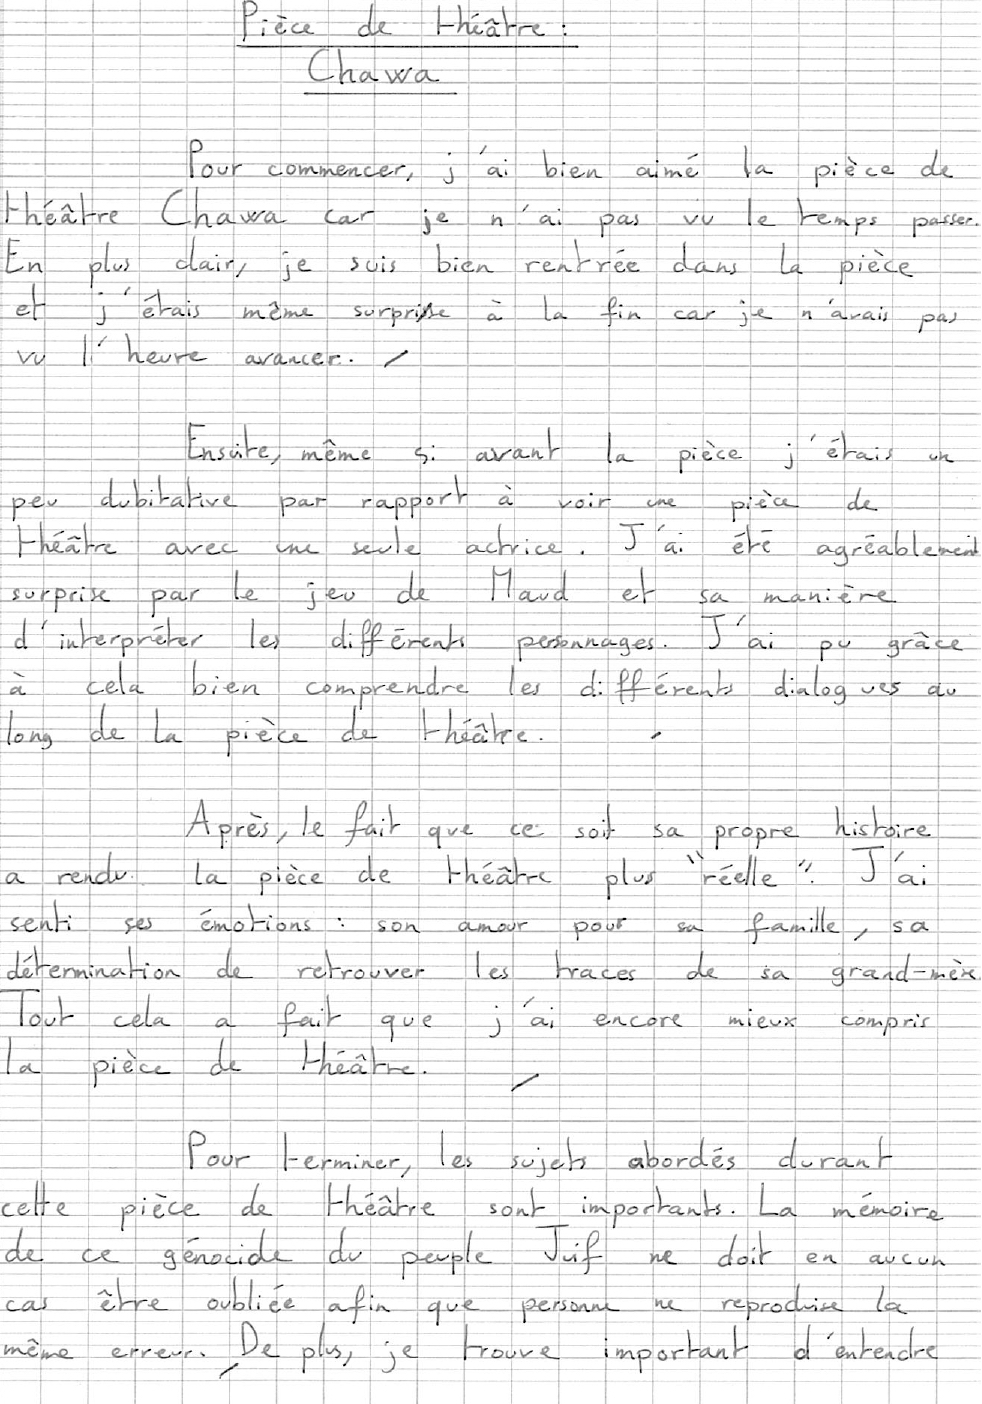 Pièce de théâtre :
Chawa
Pour commencer, j'ai bien aimé la pièce de
théâtre Chawa car je n'ai pas vu le temps passer.
En plus clair, je suis bien rentrée dans la pièce
et j'étais même surprise à la fin car je n'avais pas
vu l'heure avancer.
Ensuite, même si avant la pièce j'étais un
peu dubitative par rapport à voir une pièce de
théâtre avec une seule actrice. J'ai été agréablement
surprise par le jeu de Maud et sa manière
d'interpréter les différents personnages. J'ai pu grâce
à cela bien comprendre les différents dialogues au
long de la pièce de théâtre.
Après, le fait que ce soit sa propre histoire
a rendu la pièce de théâtre plus "réelle". J'ai
senti ses émotions : son amour pour sa famille, sa
détermination de retrouver les traces de sa grand-mère.
Tout cela a fait que j'ai encore mieux compris
la pièce de théâtre.
Pour terminer, les sujets abordés durant
cette pièce de théâtre sont importants. La mémoire
de ce génocide du peuple Juif ne doit en aucun
cas être oubliée afin que personne ne reproduise la
même erreur. De plus, je trouve important d'entendre